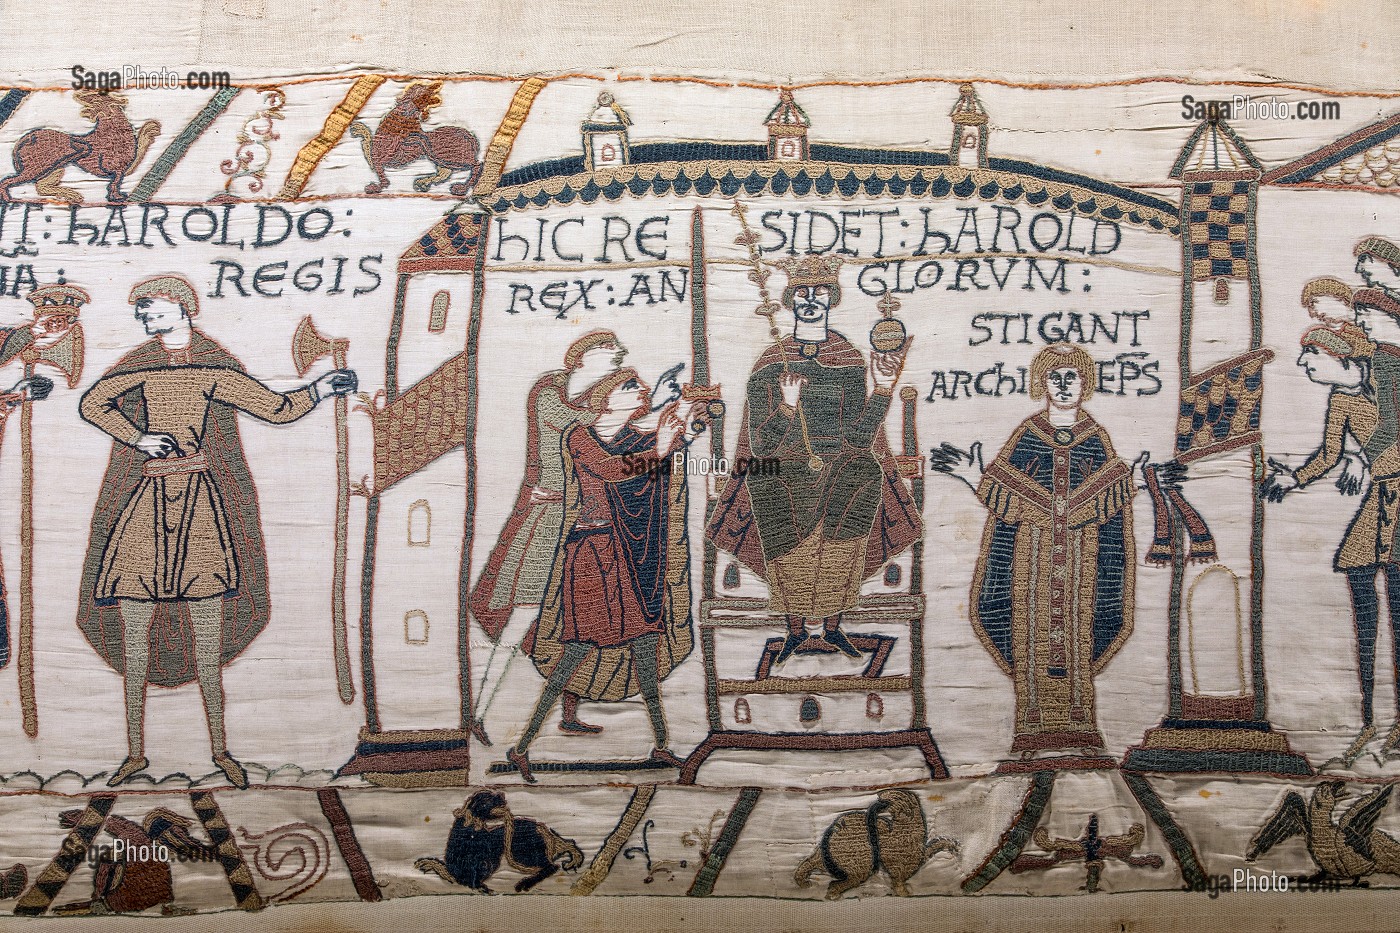 IT : hAROLDO :
NA : REGIS
hIC RE SIDET : hAROLD
REX : AN GLORVM :
STIGANT
ARChI EPS
SagaPhoto.com
SagaPhoto.com
SagaPhoto.com
SagaPhoto.com
SagaPhoto.com